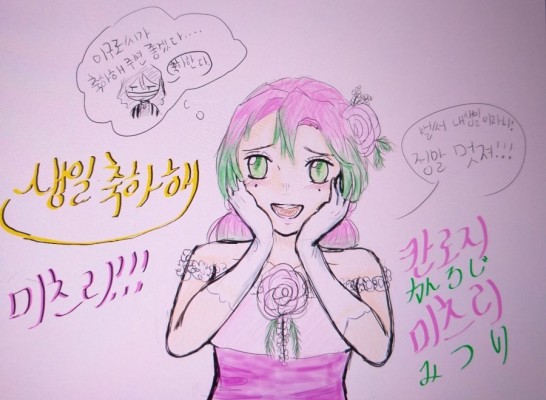 이구로씨가
축하해 주면 좋겠다....
축하한다
벌써 내 생일이라니!
정말 멋져!!!
생일 축하해
미츠리!!!
칸로지
かんろじ
미츠리
みつり